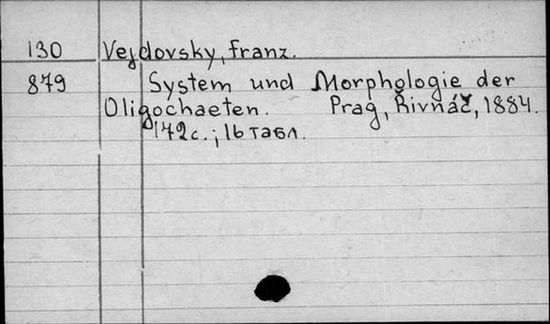 130 Vejdovsky, Franz.
879 System und Morphologie der
Oligochaeten. Prag, Řivnáč, 1884.
172 с.; 16 табл.